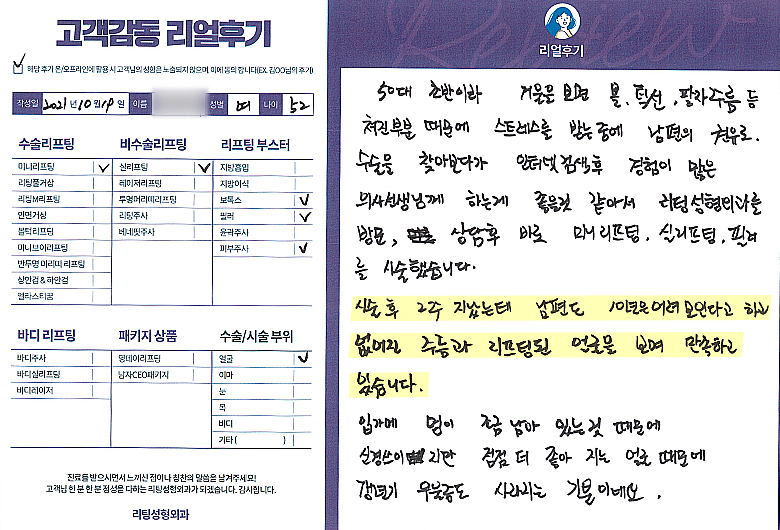 고객감동 리얼후기
해당 후기 온/오프라인에 활용 시 고객님의 성함은 노출되지 않으며, 이에 동의 합니다(EX. 김OO님의 후기)
작성일 2021년 10월 19일 이름 성별 여 나이 52
수술리프팅 비수술리프팅 리프팅 부스터
미니리프팅 실리프팅 지방흡입
리팅풀거상 레이저리프팅 지방이식
리팅M리프팅 투명머리띠리프팅 보톡스
안면거상 리팅주사 필러
팔턱리프팅 베네핏주사 윤곽주사
미니브이리프팅 피부주사
반투명 머리띠 리프팅
상안검 & 하안검
엘라스티꿈
바디 리프팅 패키지 상품 수술/시술 부위
바디주사 원데이리프팅 얼굴
바디실리프팅 남자CEO패키지 이마
바디레이저 눈
목
바디
기타 ( )
진료를 받으시면서 느끼신 점이나 칭찬의 말씀을 남겨주세요!
고객님 한 분 한 분 정성을 다하는 리팅성형외과가 되겠습니다. 감사합니다.
리팅성형외과
Review
리얼후기
50대 초반이라 거울을 보면 볼, 턱선, 팔자주름 등
쳐진부분 때문에 스트레스를 받는중에 남편의 권유로.
수술을 찾아보다가 인터넷검색후 경험이 많은
의사선생님께 하는게 좋을것 같아서 리팅성형외과를
방문, 상담후 바로 미니리프팅, 실리프팅, 필러
를 시술했습니다.
시술 후 2주 지났는데 남편도 10년은어려 보인다고 하고
없어진 주름과 리프팅된 얼굴을 보며 만족하고
있습니다.
입가에 멍이 조금 남아 있는것 때문에
신경쓰이지만 점점 더 좋아 지는 얼굴 때문에
갱년기 우울증도 사라지는 기분이네요.